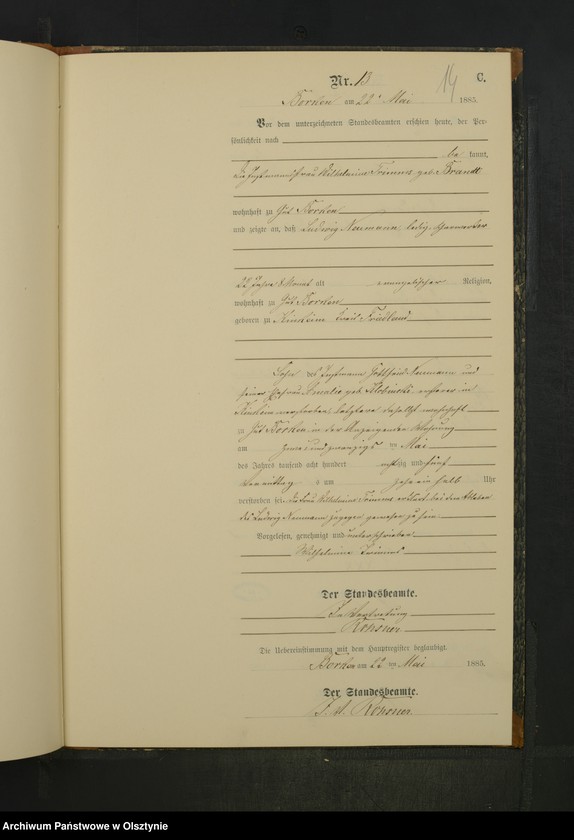 Nr. 13
14
C.
Borken am 22 t Mai 1885.
Vor dem unterzeichneten Standesbeamten erschien heute, der Per-
sönlichkeit nach
be kannt,
die Instmannsfrau Wilhelmine Trimms geb. Brandt
wohnhaft zu Gut Borken
und zeigte an, daß Ludwig Naumann, ledig,
22 Jahre 8 Monat alt evangelischer Religion,
wohnhaft zu Gut Borken
geboren zu Kinkeim Kreis Friedland
Sohn des Instmann Gottfried Naumann und
seiner Ehefrau Amalie geb. ersterer in
Kinkeim verstorben, letztere daselbst wohnhaft
zu Gut Borken in der Wohnung
am zwei und zwanzigs ten Mai
des Jahres tausend acht hundert achtzig und fünf
Vormittag s um zehn ein halb Uhr
verstorben sei. Die Frau Wilhelmine Trimms erklärt bei dem Ableben
des Ludwig Naumann zugegen gewesen zu sein.
Vorgelesen, genehmigt und unterschrieben
Wilhelmine Trimms
Der Standesbeamte.
In Vertretung
Die Uebereinstimmung mit dem Hauptregister beglaubigt.
Borken am 22 ten Mai 1885.
Der Standesbeamte.
I. V.
Archiwum Państwowe w Olsztynie